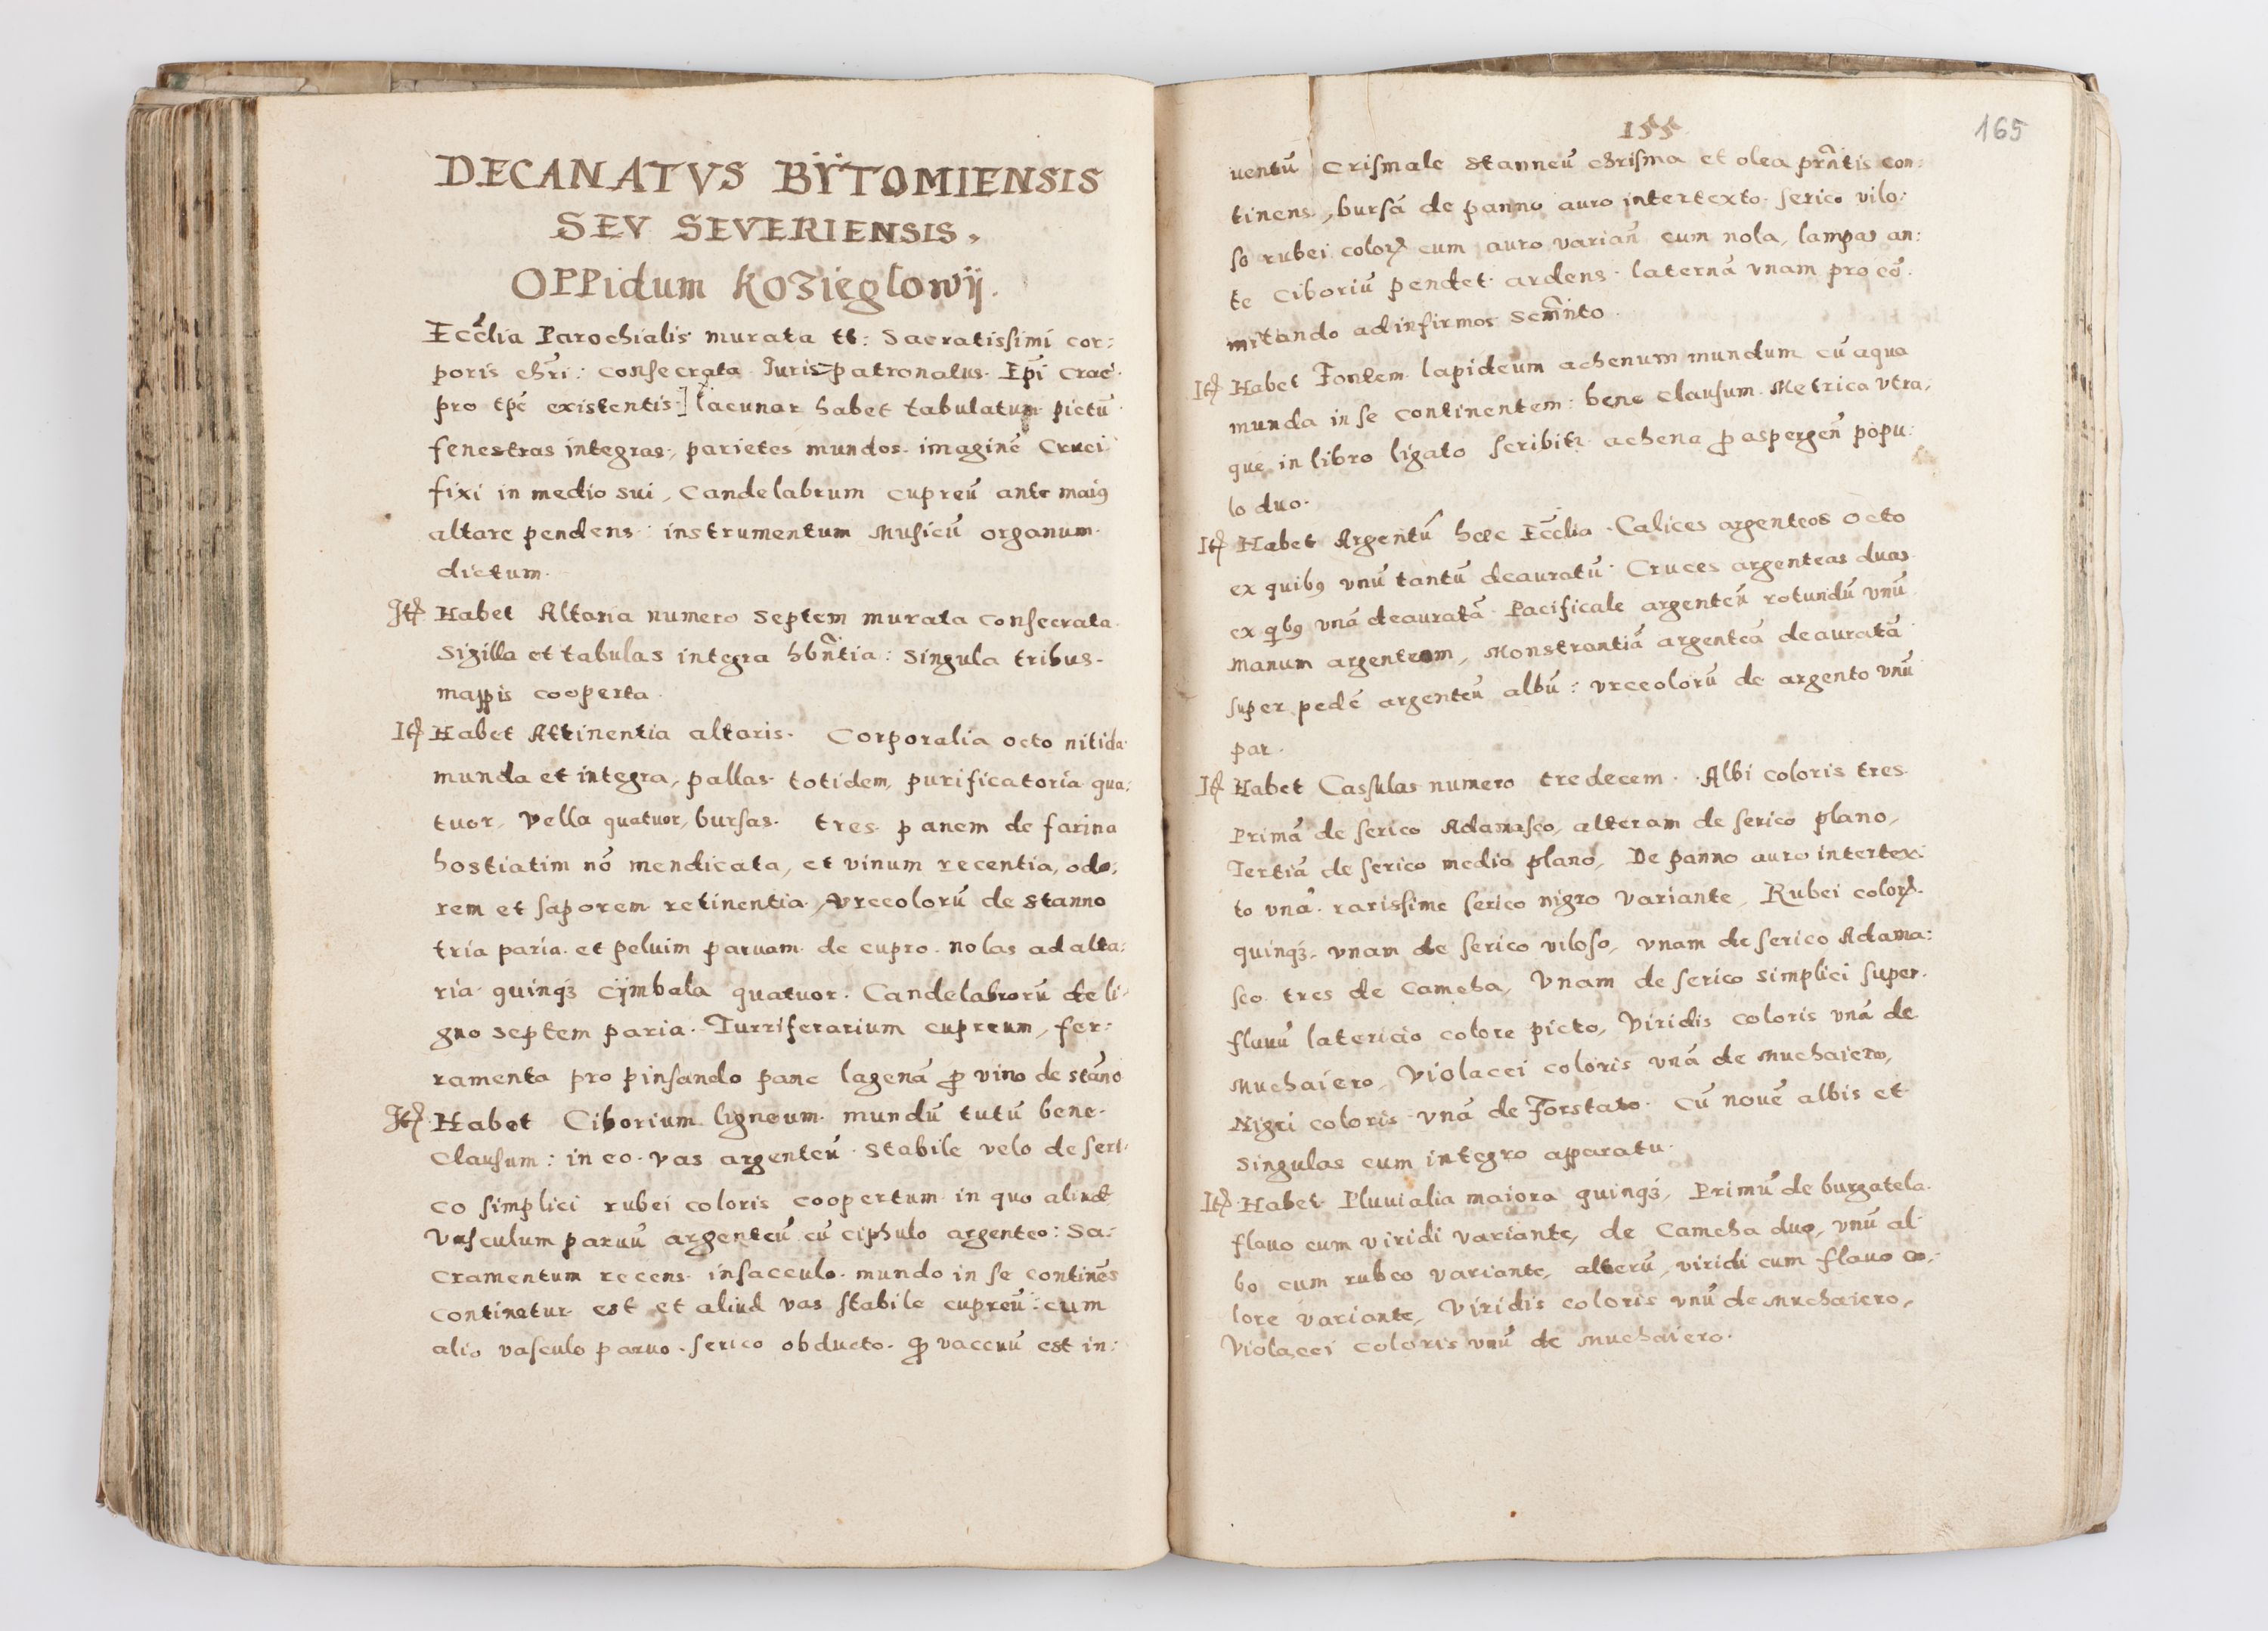 DECANATVS BŸTOMIENSIS
SEV SEVERIENSIS,
OPPidum Kozieglowÿ.
Eccłia Parochialis murata tt: Sacratissimi cor:
poris chr̃i: consecrata Iuris patronatus. Ep̃i Crac̃.
pro tp̃e existentis] lacunar habet tabulatum pictũ
fenestras integras, parietes mundos. imaginẽ Cruci
fixi in medio sui, Candelabrum cupreũ ante maiꝰ
altare pendens: instrumentum Musicũ organum.
dictum.
Itẽ Habet Altaria numero septem murata consecrata
sigilla et tabulas integra hbñtia: singula tribus.
mappis cooperta.
Itẽ Habet Attinentia altaris. Corporalia octo nitida
munda et integra, pallas totidem, purificatoria qua:
tuor, Vella quatuor, bursas. tres. panem de farina
hostiatim nõ mendicata, et vinum recentia, odo:
rem et saporem retinentia, Vrceolorũ de stanno
tria paria. et peluim paruam de cupro. nolas ad alta:
ria quinqꝫ Cÿmbala quatuor. Candelabrorũ de li:
gno septem paria. Turriferarium cupreum, fer:
ramenta pro pinsando pane lagenã ꝓ vino de stãno
Itẽ Habet Ciborium ligneum mundũ tutũ bene.
clausum: in eo vas argenteũ stabile velo de seri:
co simplici rubei coloris coopertum in quo aliud
vasculum paruũ argenteũ cũ ciphulo argenteo: Sa:
cramentum recens in sacculo mundo in se continẽs
continetur est et aliud vas stabile cupreũ: cum
alio vasculo paruo serico obducto. ꝙ vaccuũ est in:
155
165
uentũ Crismale stanneũ chrisma et olea prñtis con:
tinens, bursã de panno auro intertexto. serico vilo:
so rubei colorꝭ cum auro variañ cum nola, lampas an:
te Ciboriũ pendet ardens. laternã vnam pro cõ
mitando ad infirmos Scm̃nto.
Itẽ Habet Fontem lapideum achenum mundum cũ aqua
munda in se continentem: bene clausum. Metrica vtra,
que in libro ligato scribitr achena ꝓ aspergeñ popu:
lo duo.
Itẽ Habet Argentũ haec Eccłia. Calices argenteos octo
ex quibꝰ vnũ tantũ deauratũ. Cruces argenteas duas
ex qbꝰ vnã deauratã. Pacificale argenteũ rotundũ vnũ
Manum argenteam, Monstrantiã argenteã deauratã
super pedẽ argenteũ albũ: vrceolorũ de argento vnũ
par.
Itẽ Habet Cassulas numero tredecem. Albi coloris tres
Primã de serico Adamasco, alteram de serico plano,
Tertiã de serico medio plano, De panno auro intertex:
to vnã. rarissime serico nigro variante, Rubei colorꝭ.
quinqꝫ. vnam de serico viloso, vnam de serico Adama:
sco tres de Cameha, Vnam de serico simplici super.
fluuũ latericio colore picto, Viridis coloris vnã de
Muchaiero, Violacei coloris vnã de Muchaiero,
Nigri coloris vnã de Forstato. Cũ nouẽ albis et
singulas cum integro apparatu.
Itẽ Habet Pluuialia maiora quinqꝫ, Primũ de burgatela
flauo cum viridi variante, de Cameha duo, vnũ al
bo cum rubeo variante, alterũ, viridi cum flauo co:
lore variante, Viridis coloris vnũ de Muchaiero,
Violacei coloris vnũ de Muchaiero.